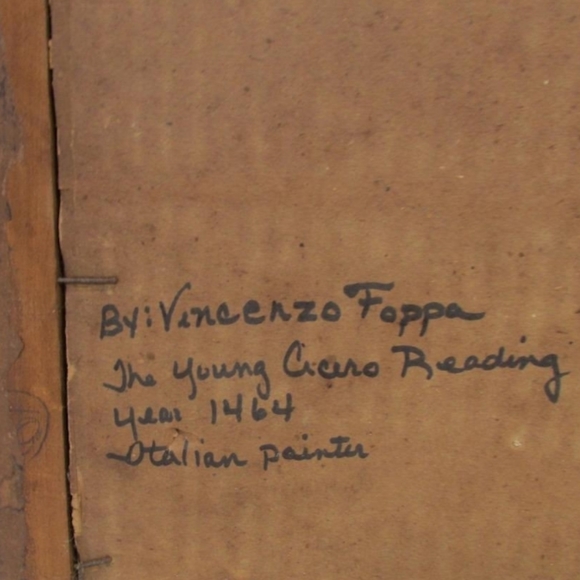 By: Vincenzo Foppa
The Young Cicero Reading
year 1464
Italian painter